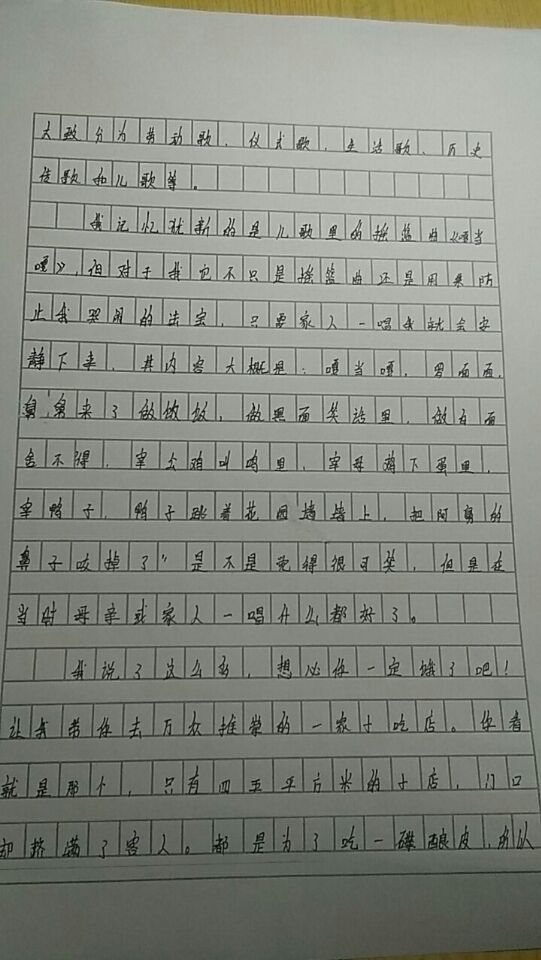 大致分为劳动歌、仪式歌、生活歌、历史
传歌和儿歌等。
我记忆犹新的是儿歌里的摇篮曲《嘎当
嘎》,但对于我它不只是摇篮曲还是用来防
止我哭闹的法宝,只要家人一唱我就会安
静下来,其内容大概是:嘎当嘎,罗面面,
舅舅来了做饮饭,做黑面笑话里,做白面
舍不得,宰公鸡叫鸣里,宰母鸡下蛋里,
宰鸭子,鸭子跳着花园墙墙上,把阿舅的
鼻子咬掉了”是不是觉得很可笑,但是在
当时母亲或家人一唱什么都好了。
我说了这么多,想必你一定饿了吧!
让我带你去万众推荣的一家小吃店。你看
就是那个,只有四五平方米的小店,门口
却挤满了客人。都是为了吃一碟酿皮,